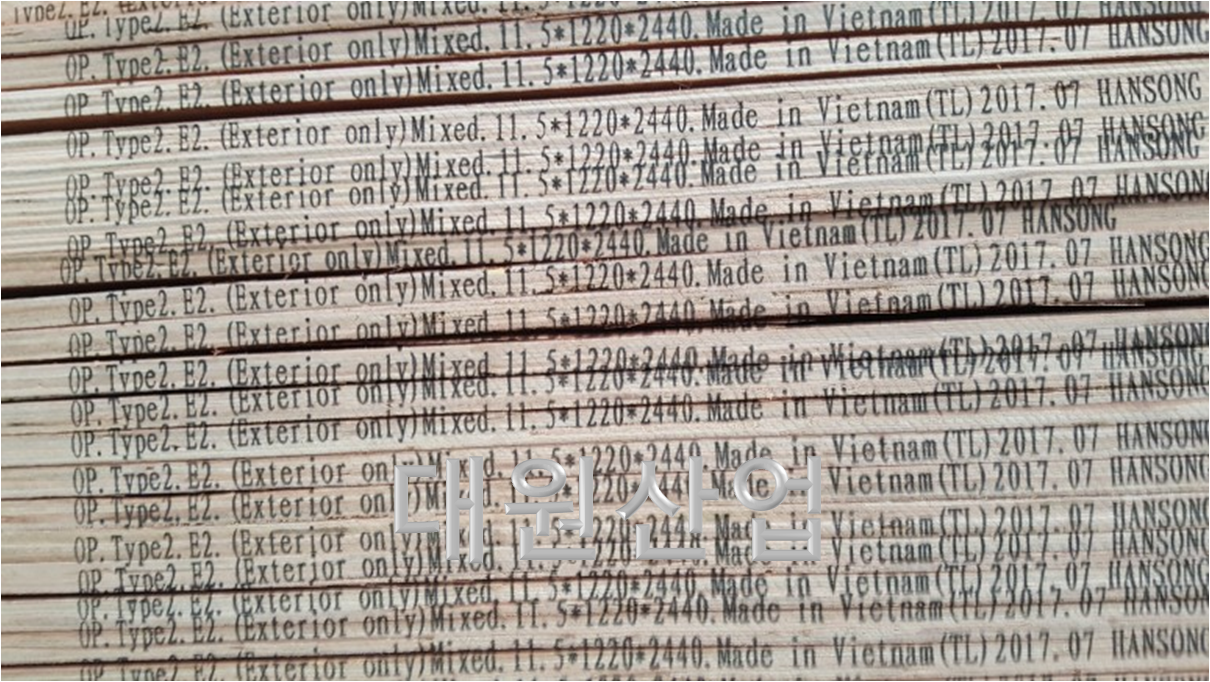 Type2. E2.
OP. Type2. E2. (Exterior only)Mixed.
OP. Type2. E2. (Exterior only)Mixed. 11. 5*1220*2440. Made in Vietnam(TL)
OP. Type2. E2. (Exterior only)Mixed. 11. 5*1220*2440. Made in Vietnam(TL)2017. 07 HANSONG
OP. Type2. E2. (Exterior only)Mixed. 11. 5*1220*2440. Made in Vietnam(TL)2017. 07 HANSONG
OP. Type2. E2. (Exterior only)Mixed. 11. 5*1220*2440. Made in Vietnam(TL)2017. 07 HANSONG
OP. Type2. E2. (Exterior only)Mixed. 11. 5*1220*2440. Made in Vietnam(TL)2017. 07 HANSONG
OP. Type2. E2. (Exterior only)Mixed. 11. 5*1220*2440. Made in Vietnam(TL)2017. 07 HANSONG
OP. Type2. E2. (Exterior only)Mixed. 11. 5*1220*2440. Made in Vietnam(TL)2017. 07 HANSONG
OP. Type2. E2. (Exterior only)Mixed. 11. 5*1220*2440. Made in Vietnam(TL)2017. 07 HANSONG
OP. Type2. E2. (Exterior only)Mixed. 11. 5*1220*2440. Made in Vietnam(TL)2017. 07 HANSONG
OP. Type2. E2. (Exterior only)Mixed. 11. 5*1220*2440. Made in Vietnam(TL)2017. 07 HANSONG
OP. Type2. E2. (Exterior only)Mixed. 11. 5*1220*2440. Made in Vietnam(TL)2017. 07 HANSONG
OP. Type2. E2. (Exterior only)Mixed. 11. 5*1220*2440. Made in Vietnam(TL)2017. 07 HANSONG
OP. Type2. E2. (Exterior only)Mixed. 11. 5*1220*2440. Made in Vietnam(TL)2017. 07 HANSONG
OP. Type2. E2. (Exterior only)Mixed. 11. 5*1220*2440. Made in Vietnam(TL)2017. 07 HANSONG
대원산업
OP. Type2. E2. (Exterior only)Mixed. 11. 5*1220*2440. Made in Vietnam(TL)2017. 07 HANSONG
OP. Type2. E2. (Exterior only)Mixed. 11. 5*1220*2440. Made in Vietnam(TL)2017. 07 HANSONG
OP. Type2. E2. (Exterior only)Mixed. 11. 5*1220*2440. Made in Vietnam(TL)2017. 07 HANSONG
OP. Type2. E2. (Exterior only)Mixed. 11. 5*1220*2440. Made in Vietnam(TL)2017. 07 HANSONG
OP. Type2. E2. (Exterior only)Mixed. 11. 5*1220*2440. Made in Vietnam(TL)2017. 07 HANSONG